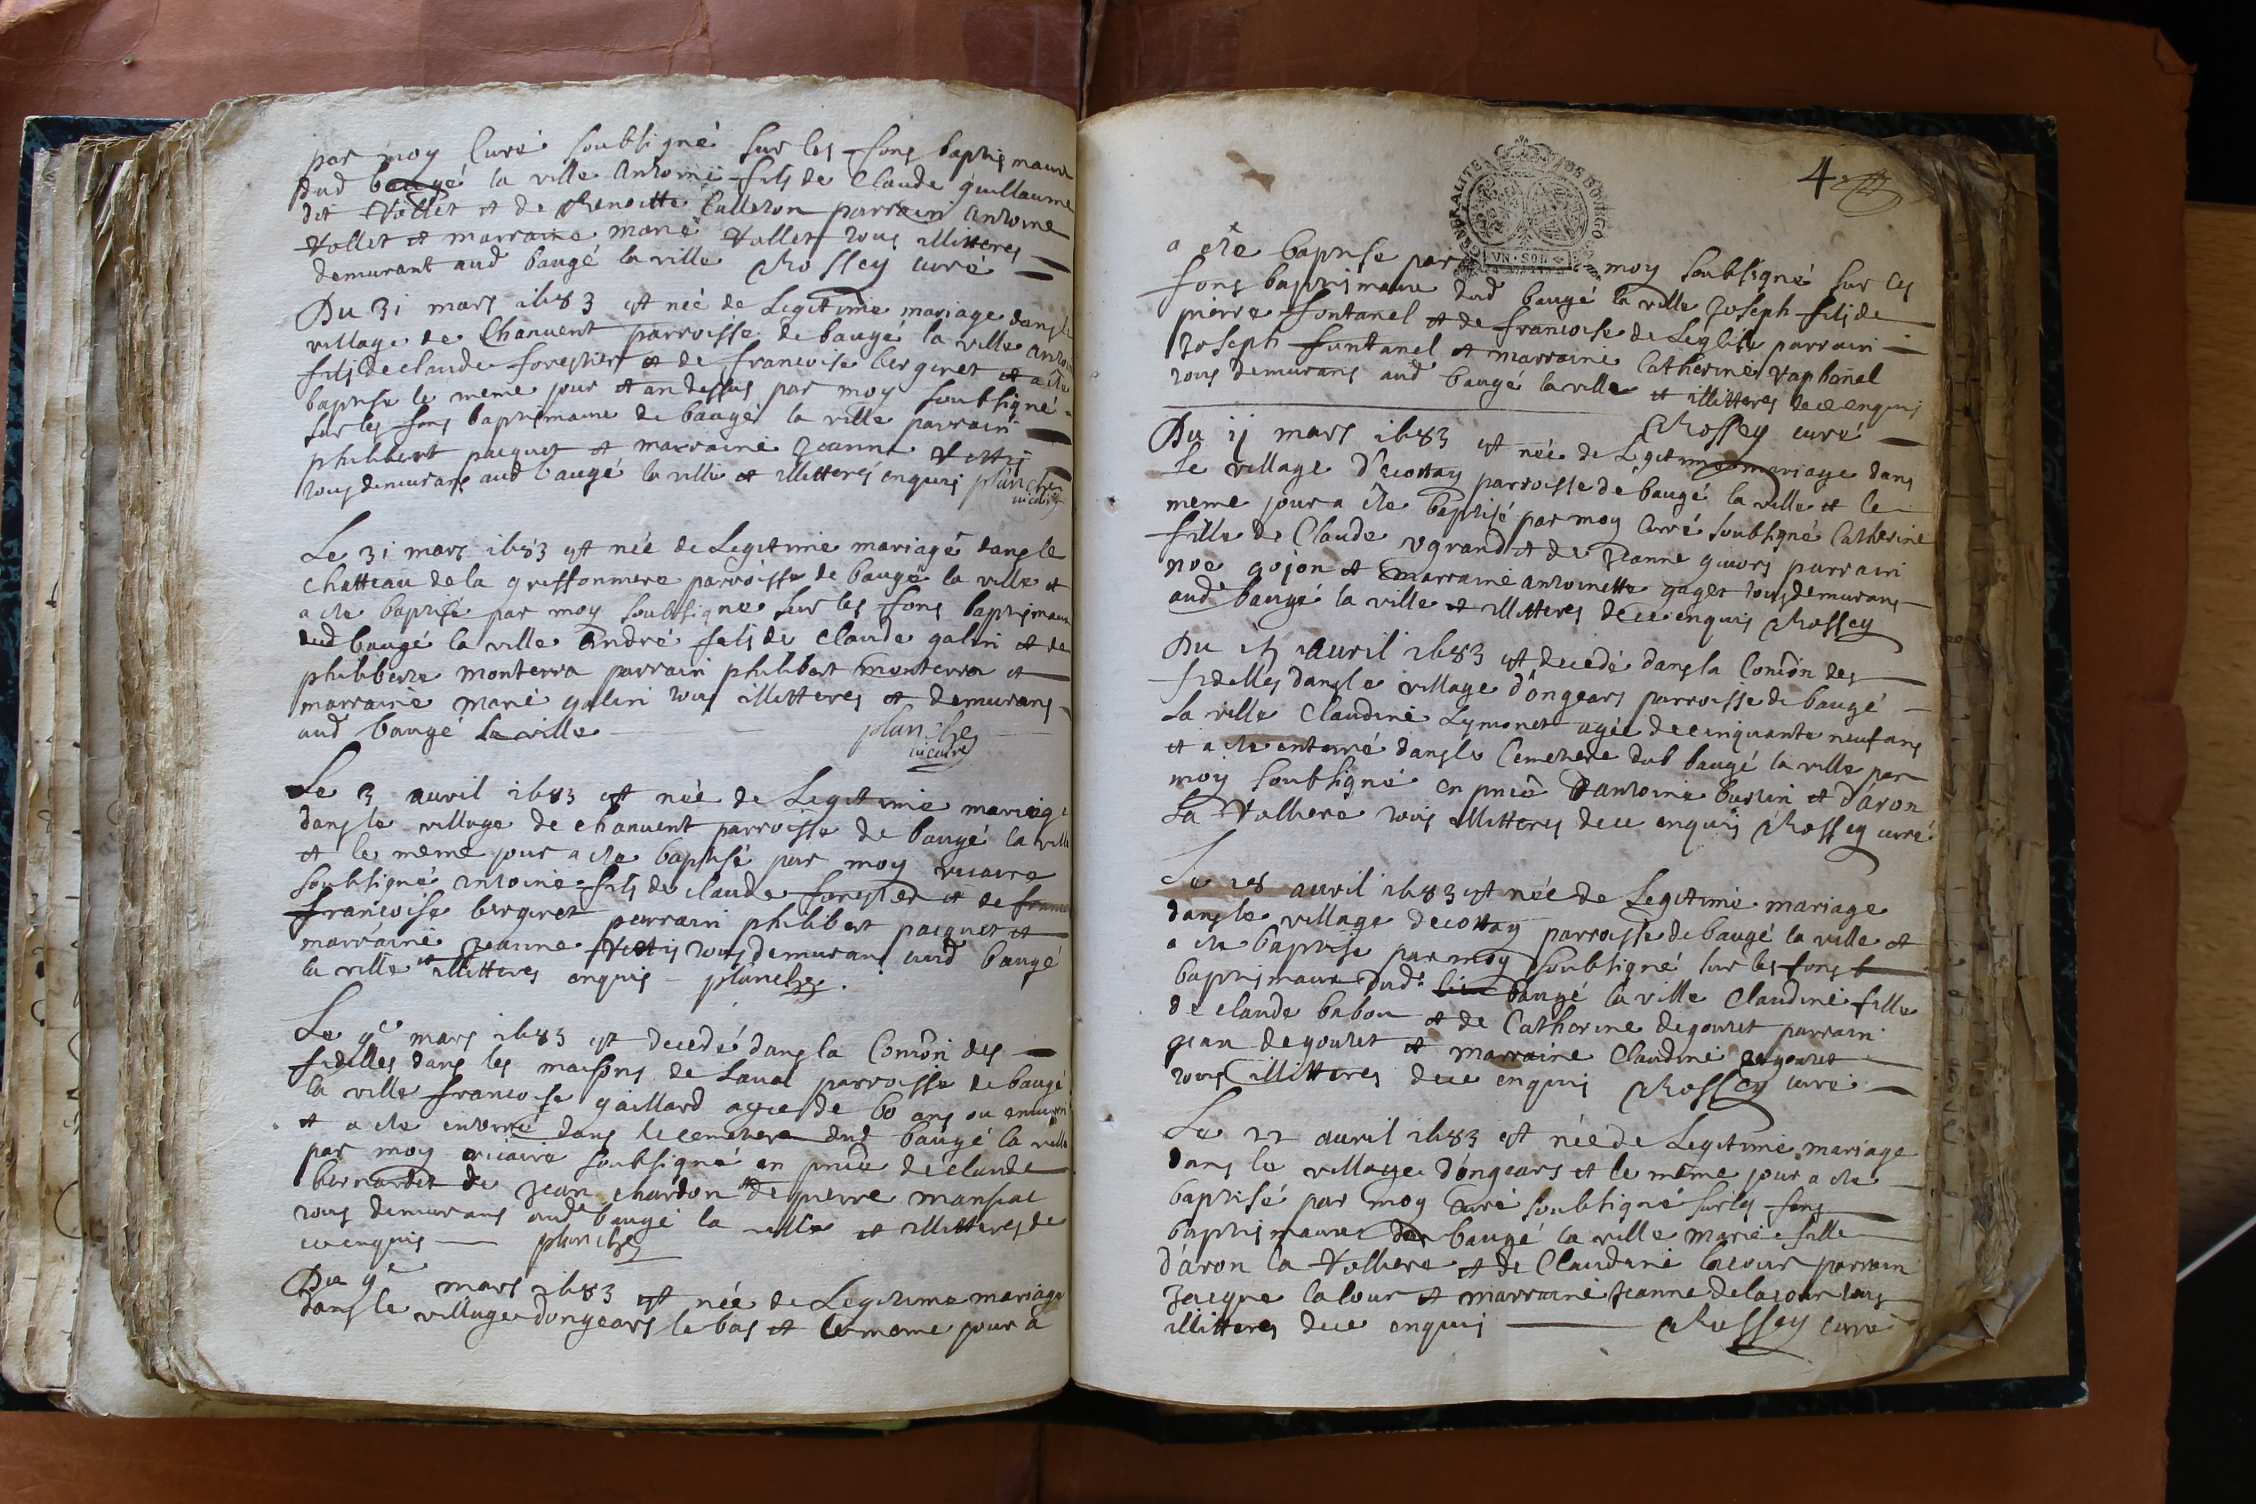 par moy Curé soubsigné sur les fons baptismaux
dud baugé la ville Antoine fils de Claude guillaume
dit Vollet et de Benoitte Culleron parrain Antoine
Vollet et marraine marie Vollet tous illitteres
demurant aud baugé la ville Rossey curé
Du 31 mars 1683 est née de Legitime mariage dans le
village de Chanuent parroisse de baugé la ville antoi
fils de claude forestier et de francoise bergiret et a été
baptise le meme jour et an dessus par moy soubsigné
sur les fons baptismaux de baugé la ville parrain
philibert paequet et marraine Jeanne
tous demurans aud baugé la ville et illitteres enquis planche
vicaire
Le 31 mars 1683 est née de Legitime mariage dans le
chatteau de la griffonniere parroisse de baugé la ville et
a ete baptisé par moy soubsigne sur les fons baptismaux
dud baugé la ville André fils de claude galin et de
philiberte monterra parrain philibert monterra et
marraine marie galin tous illitteres et demurans
aud baugé la ville planche
vicaire
Le 3 auril 1683 est née de Legitime mariage
dans le village de chanuent parroisse de baugé la ville
et le meme jour a ete baptisé par moy vicaire
soubsigné Antoine fils de claude forestier et de
francoise bergiret parrain philibert paequet et
marraine Jeanne tous demurans aud baugé
la ville et illitteres enquis - planche.
Le 9e mars 1683 est decedé dans la Comôn des
fidelles dans les maisons de Laual parroisse de baugé
la ville francoise gaillard agée de 60 ans ou enuiron
et a ete enterré dans le cemetiere dud baugé la ville
par moy vicaire soubsigné en pnce de claude
bernardet de Jean chardon de pierre mansiat
tous demurans aud baugé la ville et illitteres de
ce enquis planche
Du 9e mars 1683 est née de Legitime mariage
dans le village dongears le bas et le meme jour a
4e
GENERALITE DE BOURGO
VN · SOL
a ete baptise par moy soubsigné sur les
fons baptismaux dud baugé la ville Joseph fils de
pierre fontanel et de francoise de Leglise parrain
Joseph funtanel et marraine Catherine Vaphanel
tous demurans aud baugé la ville et illitteres de ce enquis
Rossey curé
Du ij mars 1683 est née de Legitime mariage dans
le village d'ecottay parroisse de baugé la ville et le
meme jour a ête baptisé par moy Curé soubsigné Catherine
fille de Claude vgrand et de Jeanne guiors parrain
noe gojon et marraine antoinette gaget tous demurans
aud baugé la ville et illitteres de ce enquis Rossey
Du 15 auril 1683 est decedé dans la Comôn des
fidelles dans le village d'ongears parroisse de baugé
la ville Claudine Lymonet agée de cinquante neuf ans
et a ete enterré dans le Cemetiere dud baugé la ville par
moy soubsigné en pnce d'antoine burtin et d'aron
la Volliere tous illitteres de ce enquis Rossey curé
Le 18 auril 1683 est née de Legitime mariage
dans le village decottay parroisse de baugé la ville et
a ete baptise par moy soubsigné sur les fons
baptismaux dud. baugé la ville Claudine fille
de claude babou et de Catherine degoutet parrain
jean degoutet et marraine Claudine degoutet
tous illitteres de ce enquis Rossey curé
Le 22 auril 1683 est née de Legitime mariage
dans le village d'ongears et le même jour a ete
baptisé par moy curé soubsigné sur les fons
baptismaux baugé la ville marie fille
d'aron la Volliere et de Claudine lacour parrain
Jacque lalour et marraine Jeanne delacour tous
illitteres de ce enquis Rossey curé